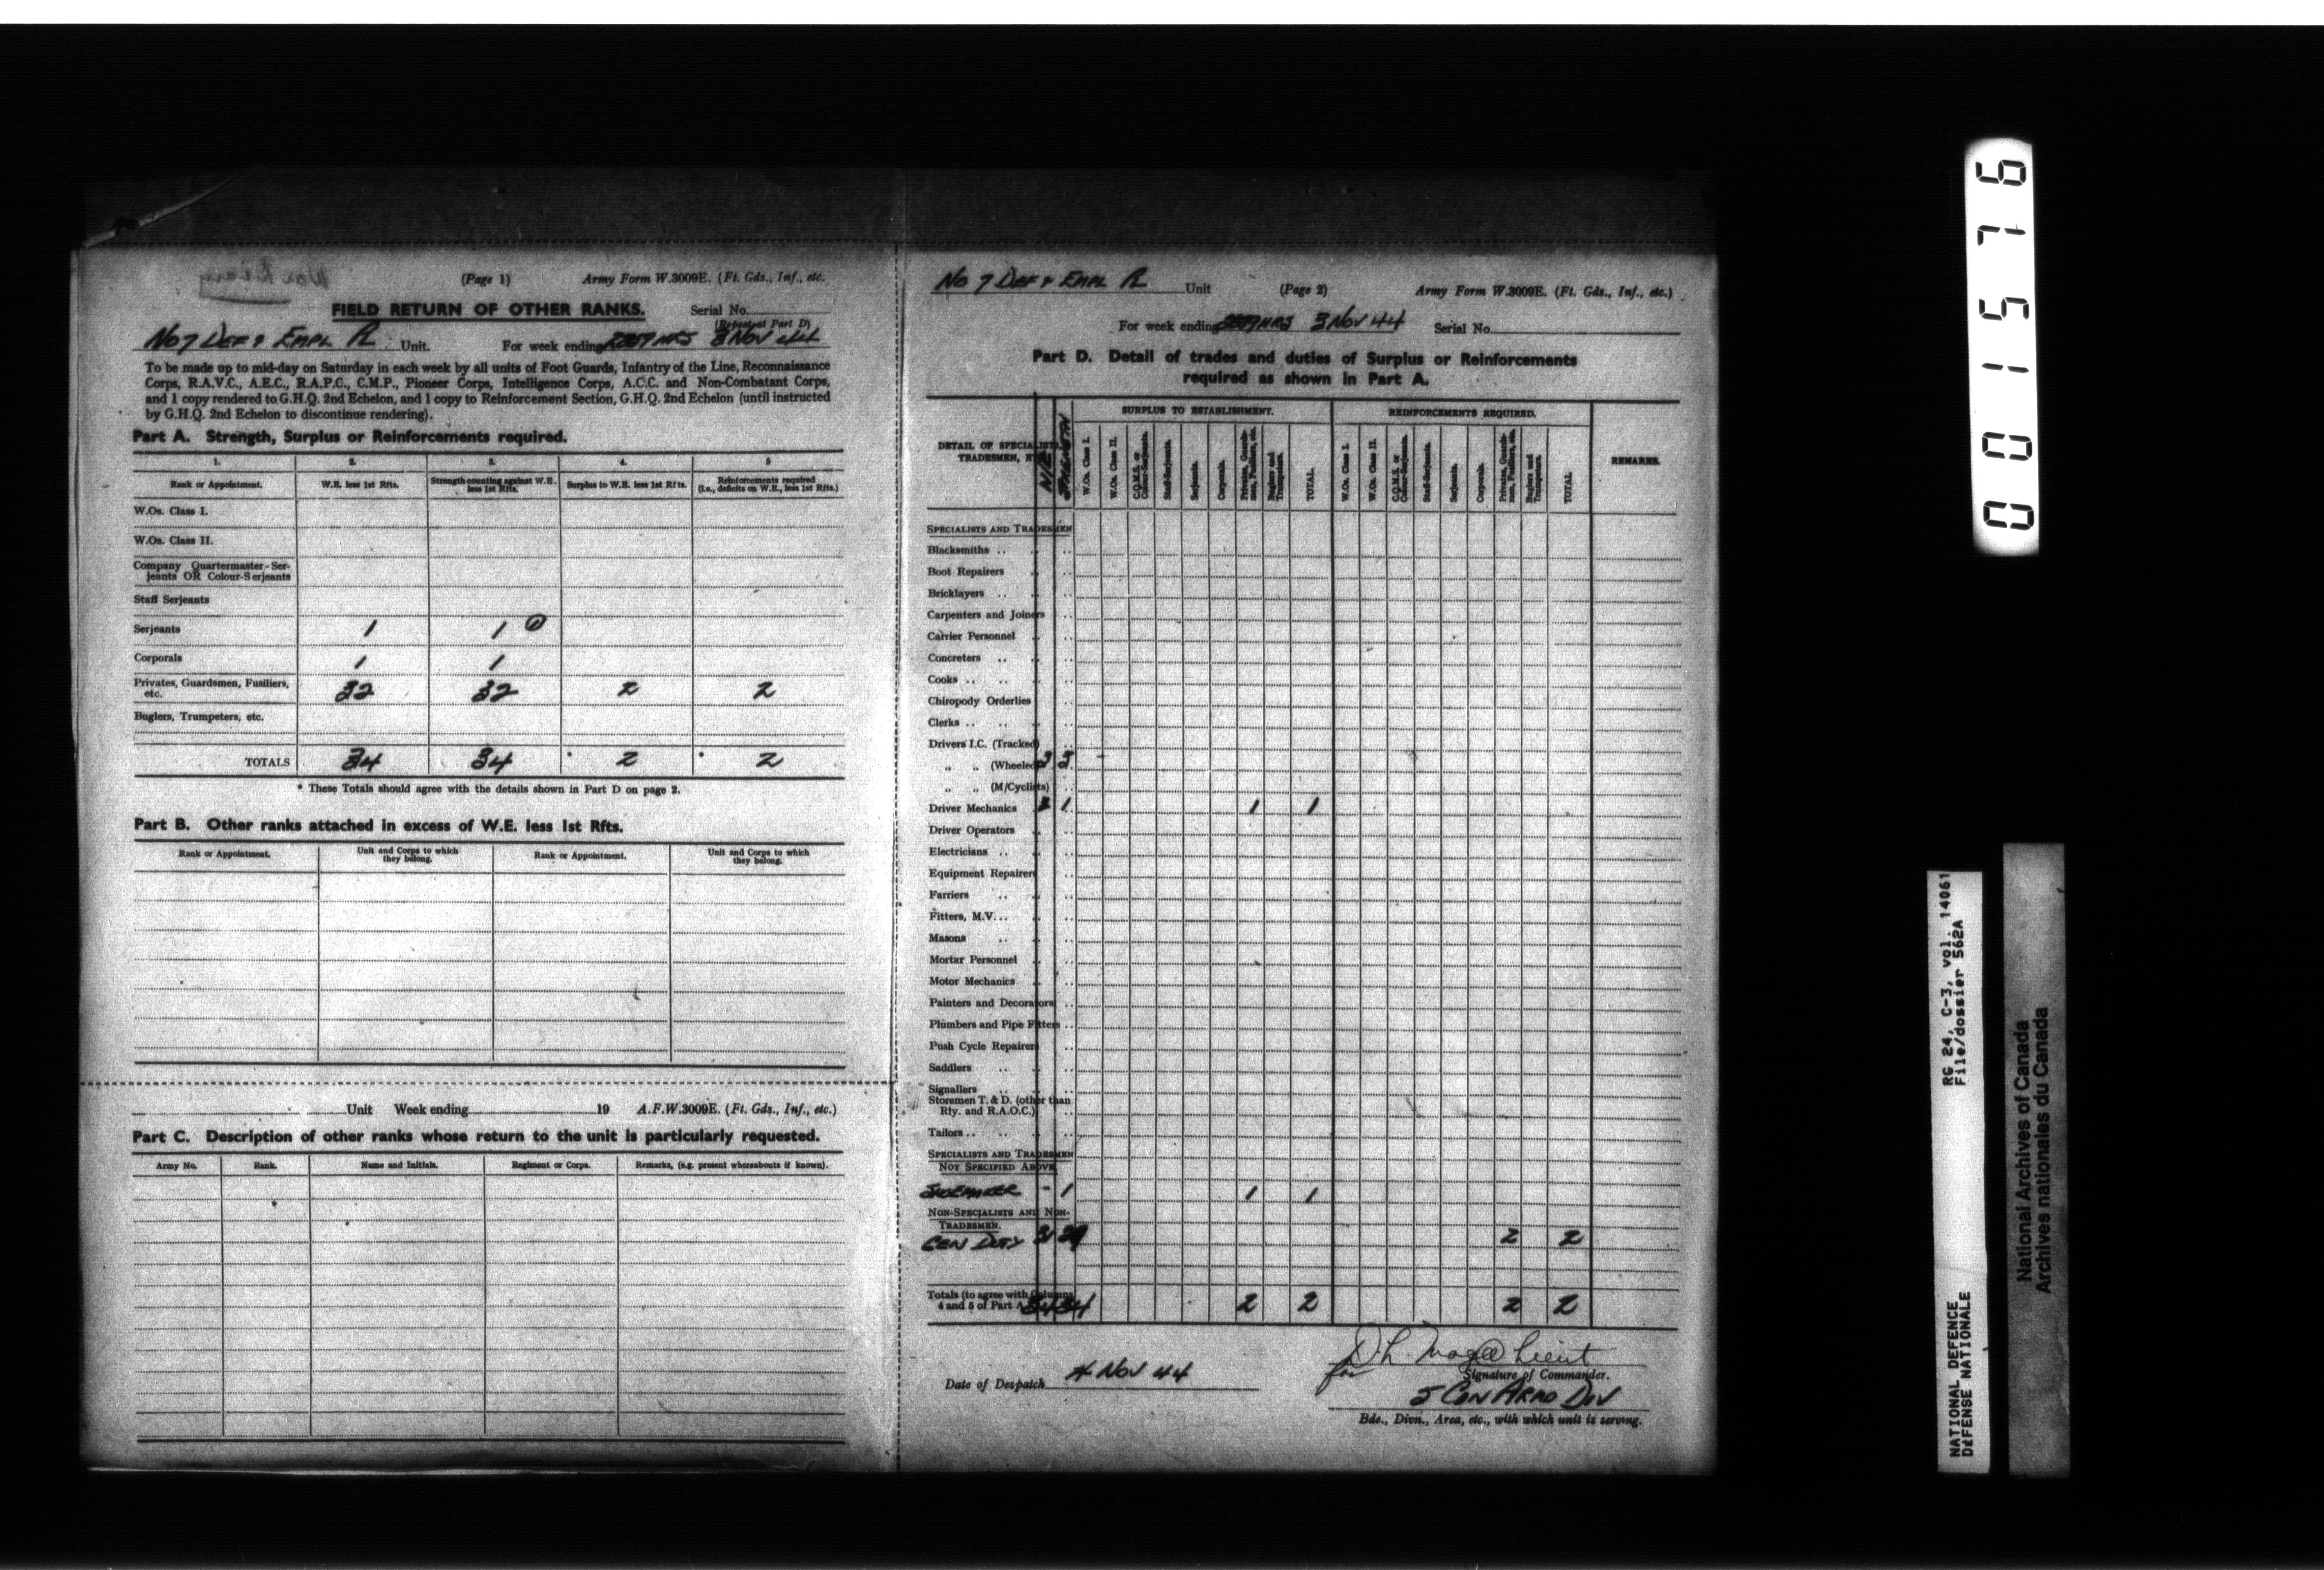 (Page 1) Army Form W.3009E. (Ft. Gds., Inf., etc.
FIELD RETURN OF OTHER RANKS. Serial No.
(Repeat at Part D)
No 7 DEF & EMPL Pl Unit. For week ending HRS 3 NOV 44
To be made up to mid-day on Saturday in each week by all units of Foot Guards, Infantry of the Line, Reconnaissance
Corps, R.A.V.C., A.E.C., R.A.P.C., C.M.P., Pioneer Corps, Intelligence Corps, A.C.C. and Non-Combatant Corps,
and 1 copy rendered to G.H.Q. 2nd Echelon, and 1 copy to Reinforcement Section, G.H.Q. 2nd Echelon (until instructed
by G.H.Q. 2nd Echelon to discontinue rendering).
Part A. Strength, Surplus or Reinforcements required.
1. 2. 3. 4. 5
Rank or Appointment. W.E. less 1st Rfts. Strength counting against W.E. less 1st Rfts. Surplus to W.E. less 1st Rfts. Reinforcements required (i.e., deficits on W.E., less 1st Rfts.)
W.Os. Class I.
W.Os. Class II.
Company Quartermaster-Ser-
jeants OR Colour-Serjeants
Staff Serjeants
Serjeants 1 1
Corporals 1 1
Privates, Guardsmen, Fusiliers, etc. 32 32 2 2
Buglers, Trumpeters, etc.
TOTALS 34 34 * 2 * 2
* These Totals should agree with the details shown in Part D on page 2.
Part B. Other ranks attached in excess of W.E. less 1st Rfts.
Rank or Appointment. Unit and Corps to which they belong. Rank or Appointment. Unit and Corps to which they belong.
Unit Week ending 19 A.F.W.3009E. (Ft. Gds., Inf., etc.)
Part C. Description of other ranks whose return to the unit is particularly requested.
Army No. Rank. Name and Initials. Regiment or Corps. Remarks, (e.g. present whereabouts if known).
No 7 DEF & EMPL Pl Unit (Page 2) Army Form W.3009E. (Ft. Gds., Inf., etc.)
For week ending HRS 3 NOV 44 Serial No.
Part D. Detail of trades and duties of Surplus or Reinforcements
required as shown in Part A.
DETAIL OF SPECIALISTS, TRADESMEN, W/E STRENGTH SURPLUS TO ESTABLISHMENT. REINFORCEMENTS REQUIRED. REMARKS.
W.Os. Class I. W.Os. Class II. C.Q.M.S. or Colour-Serjeants. Staff-Serjeants. Serjeants. Corporals. Privates, Guardsmen, Fusiliers, etc. Buglers and Trumpeters. TOTAL.
W.Os. Class I. W.Os. Class II. C.Q.M.S. or Colour-Serjeants. Staff-Serjeants. Serjeants. Corporals. Privates, Guardsmen, Fusiliers, etc. Buglers and Trumpeters. TOTAL
SPECIALISTS AND TRADESMEN
Blacksmiths
Boot Repairers
Bricklayers
Carpenters and Joiners
Carrier Personnel
Concreters
Cooks
Chiropody Orderlies
Clerks
Drivers I.C. (Tracked)
„ „ (Wheeled) 3 3
„ „ (M/Cyclists)
Driver Mechanics 1 1 1
Driver Operators
Electricians
Equipment Repairers
Farriers
Fitters, M.V.
Masons
Mortar Personnel
Motor Mechanics
Painters and Decorators
Plumbers and Pipe Fitters
Push Cycle Repairers
Saddlers
Signallers
Storemen T. & D. (other than
Rly. and R.A.O.C.)
Tailors
SPECIALISTS AND TRADESMEN
NOT SPECIFIED ABOVE
SHOEMAKER - 1 1 1
NON-SPECIALISTS AND NON-
TRADESMEN.
GEN DUTY 31 29 2 2
Totals (to agree with Columns
4 and 5 of Part A) 34 34 2 2 2 2
Date of Despatch 4 NOV 44
Lieut
for Signature of Commander.
5 CDN ARMD DIV
Bde., Divn., Area, etc., with which unit is serving.
001576
RG 24, C-3, vol. 14061
File/dossier 562A
NATIONAL DEFENCE
DÉFENSE NATIONALE
National Archives of Canada
Archives nationales du Canada